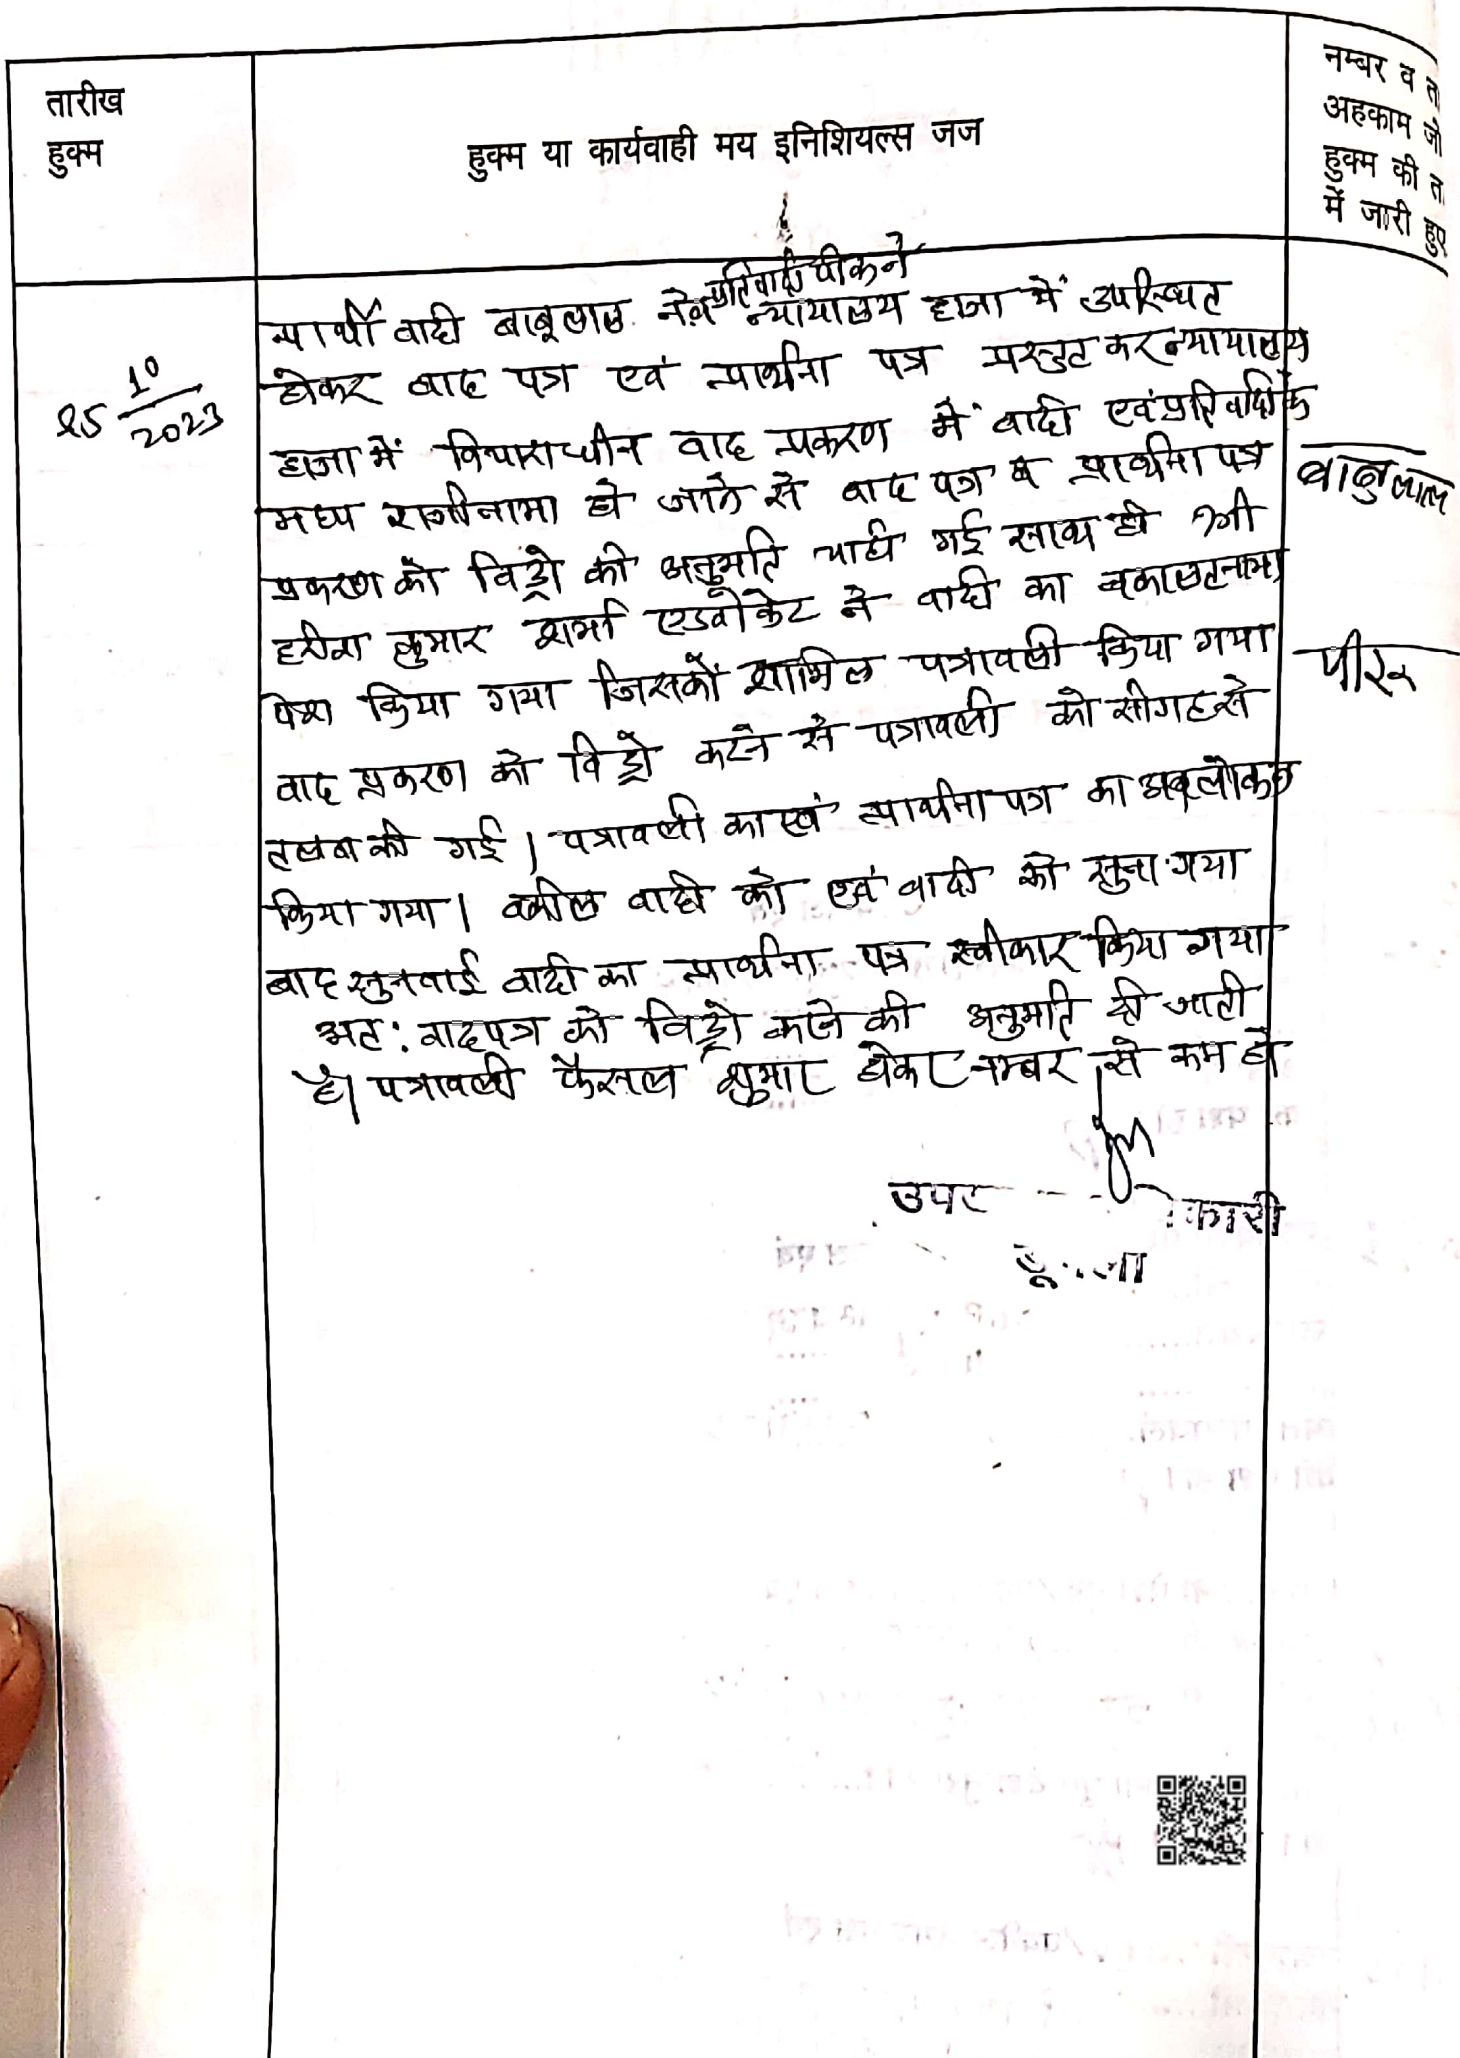 तारीख
हुक्म
हुक्म या कार्यवाही मय इनिशियल्स जज
नम्बर व
अहकाम जो
हुक्म की
में जारी हुए
25 10/2023
प्रतिवादी पीरू ने
प्रार्थी वादी बाबूलाल ने व न्यायालय हाजा में उपस्थित
होकर वाद पत्र एवं प्रार्थना पत्र प्रस्तुत कर न्यायालय
हाजा में विचाराधीन वाद प्रकरण में वादी एवं प्रतिवादी के
मध्य राजीनामा हो जाने से वाद पत्र व प्रार्थना पत्र
प्रकरण को विड्रो की अनुमति चाही गई साथ ही श्री
कुमार शर्मा एडवोकेट ने वादी का वकालतनामा
पेश किया गया जिसको शामिल पत्रावली किया गया
वाद प्रकरण को विड्रो करने से पत्रावली को सीगह से
तलब की गई। पत्रावली का एवं प्रार्थना पत्र का अवलोकन
किया गया। वकील वादी को एवं वादी को सुना गया
बाद सुनवाई वादी का प्रार्थना पत्र स्वीकार किया गया
अत: वादपत्र को विड्रो करने की अनुमति दी जाती
है। पत्रावली फैसल शुमार होकर नम्बर से कम हो
बाबुलाल